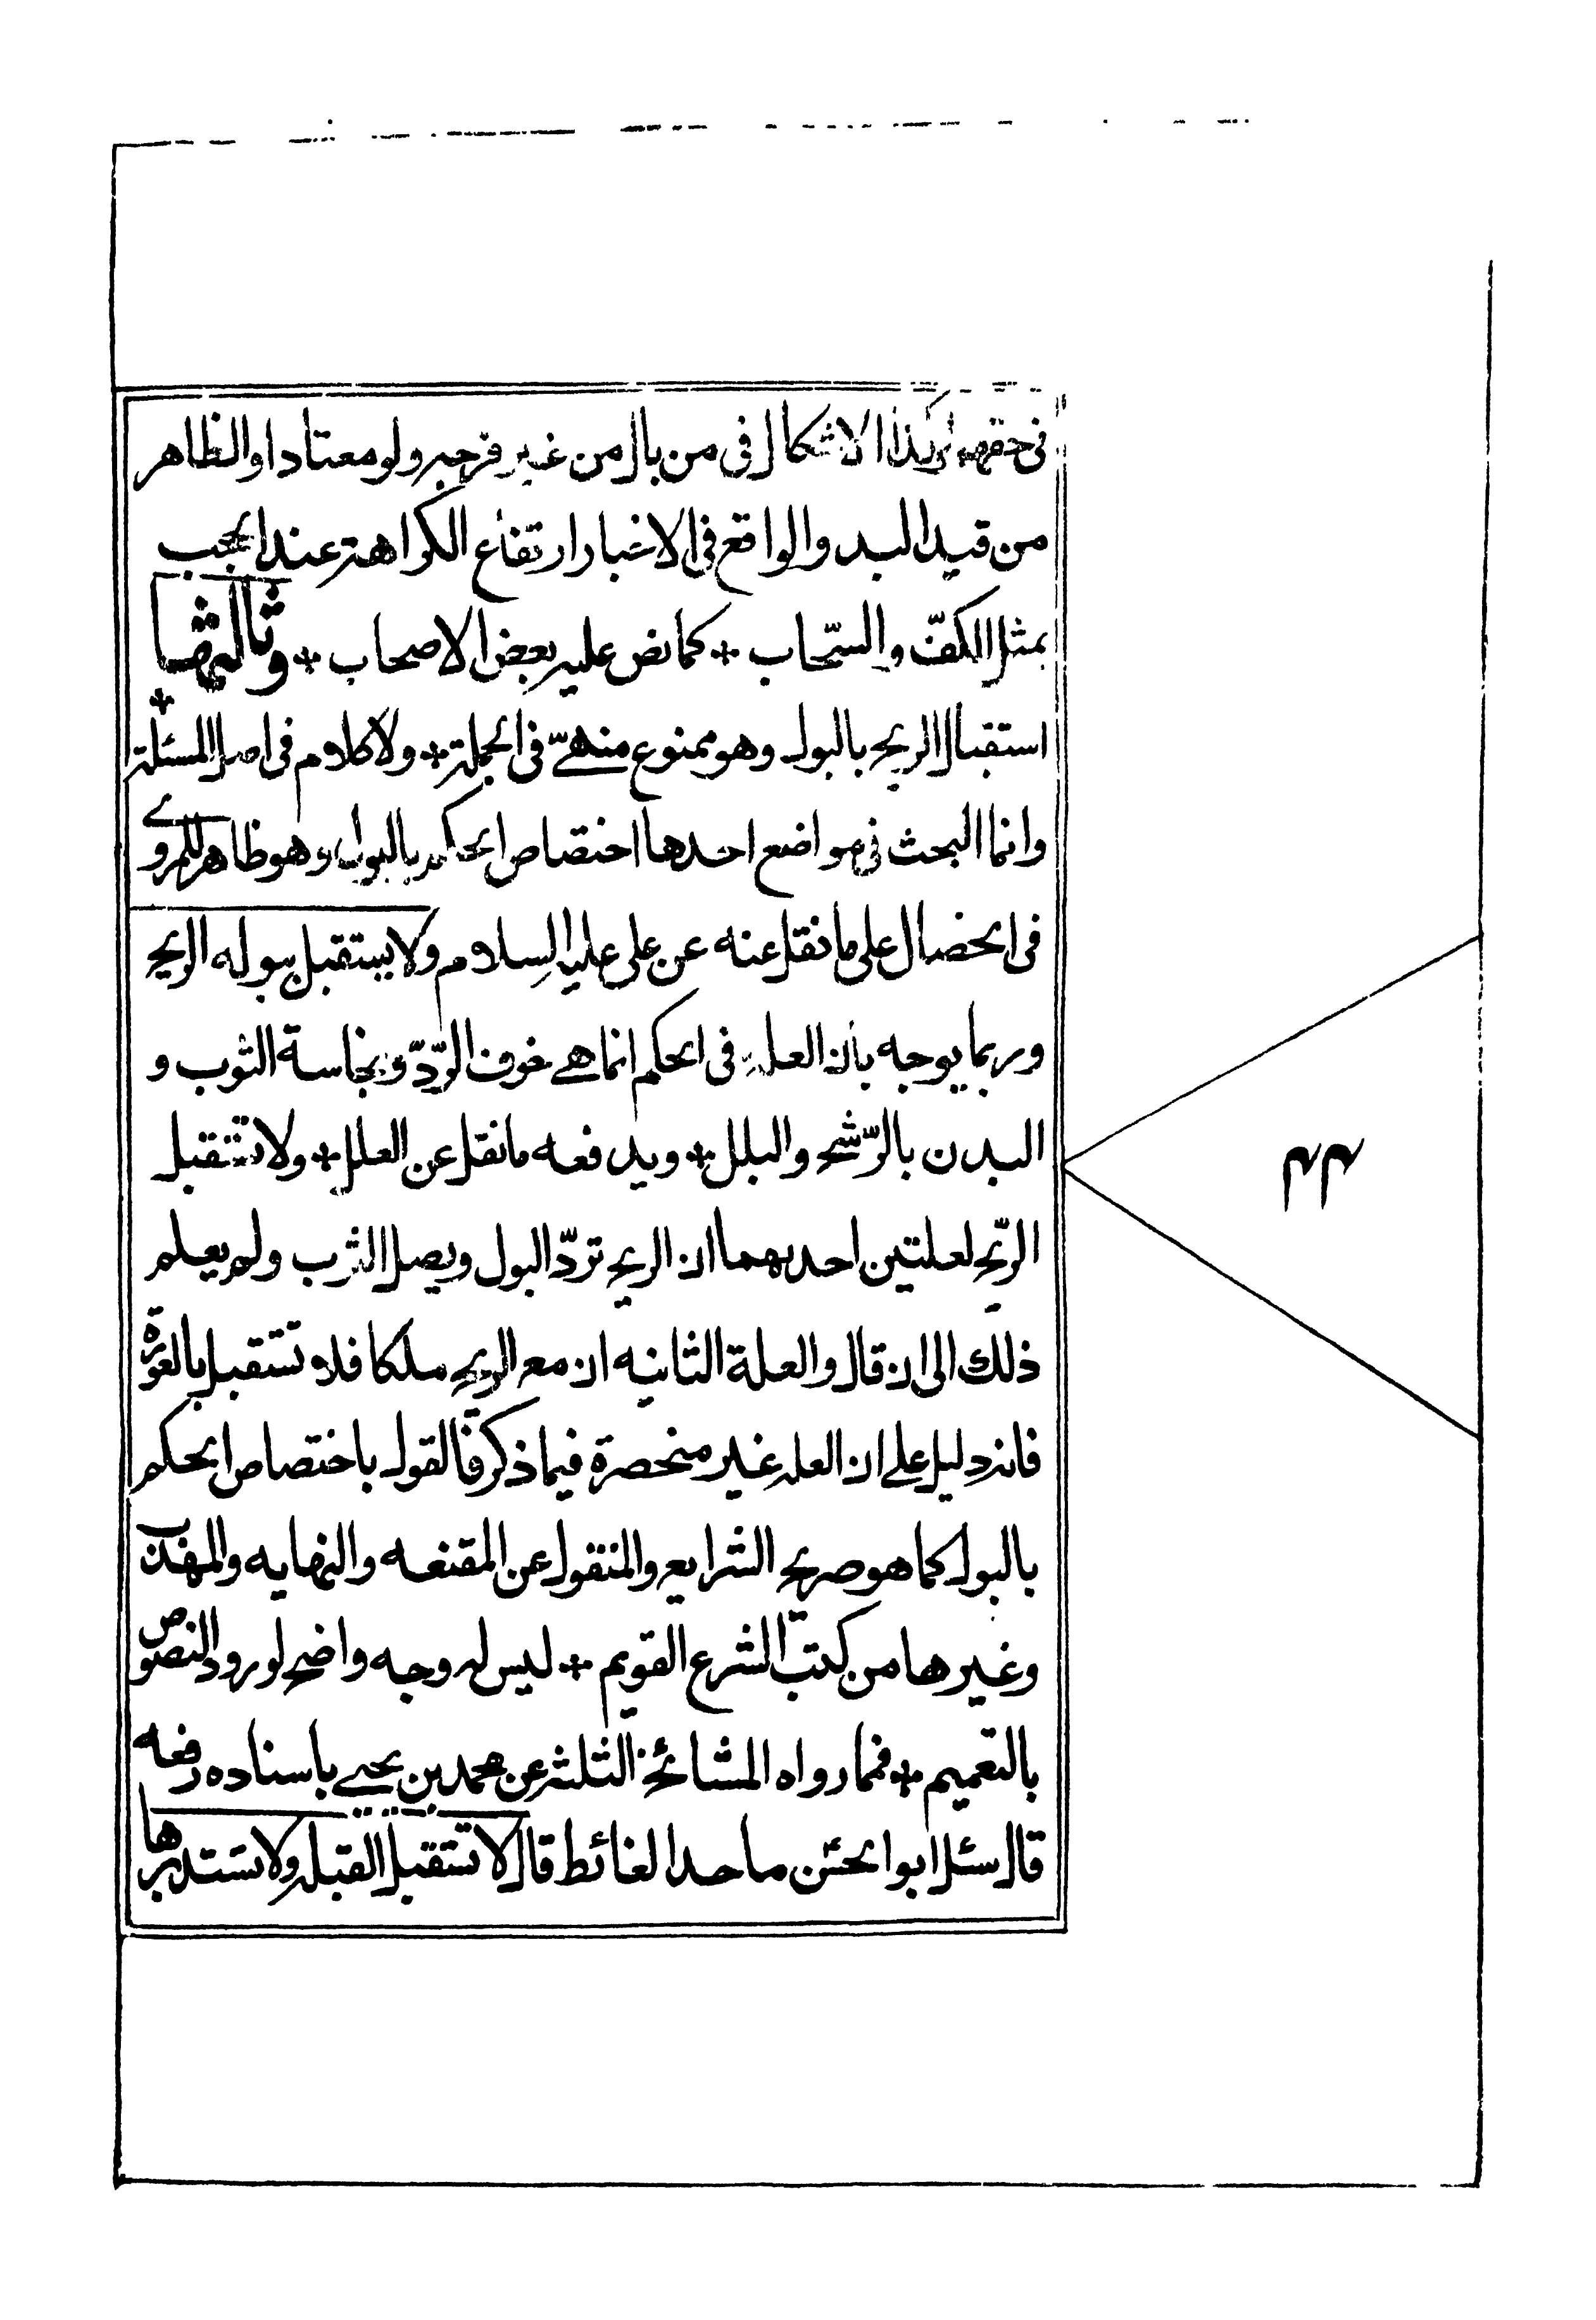 فى حقهما وكذا الاشكال فى من بال من غير فرجه ولو معتادا والظاهر
من قيد البد والواقع فى الاخبار ارتفاع الكراهة عند الحجب
بمثل الكفّ والسّحاب * كما نص عليه بعض الاصحاب * وثالثها
استقبال الريح بالبول وهو ممنوع منهىّ فى الجملة * ولا كلام فى اصل المسئلة *
وانما البحث فى مواضع احدها اختصاص الحكم بالبول وهو ظاهر المروے
فى الخصال على ما نقل عنه عن على عليه السلام ولا يستقبل ببوله الريح
وربما يوجه بان العله فى الحكم انما هے خوف الرّدّ ونجاسة الثوب و
البدن بالرّشح والبلل * ويدفعه ما نقل عن العلل * ولا تستقبل
الرّيح لعلتين احديهما ان الريح تردّ البول ويصل الثوب ولم يعلم
ذلك الى ان قال والعلة الثانيه ان مع الريح ملكا فلا تستقبل بالعورة
فانه دليل على ان العله غير منحصرة فيما ذكر فالقول باختصاص الحكم
بالبول كما هو صريح الشرايع والمنقول عن المقنعه والنهايه والمهذب
وغيرها من كتب الشرع القويم * ليس له وجه واضح لورود النصوص
بالتعميم * فمما رواه المشائخ الثلثة عن محمد بن يحيے باسناده رفعه
قال سئل ابو الحسن ما حد الغائط قال لا تستقبل القبله ولا تستدبرها